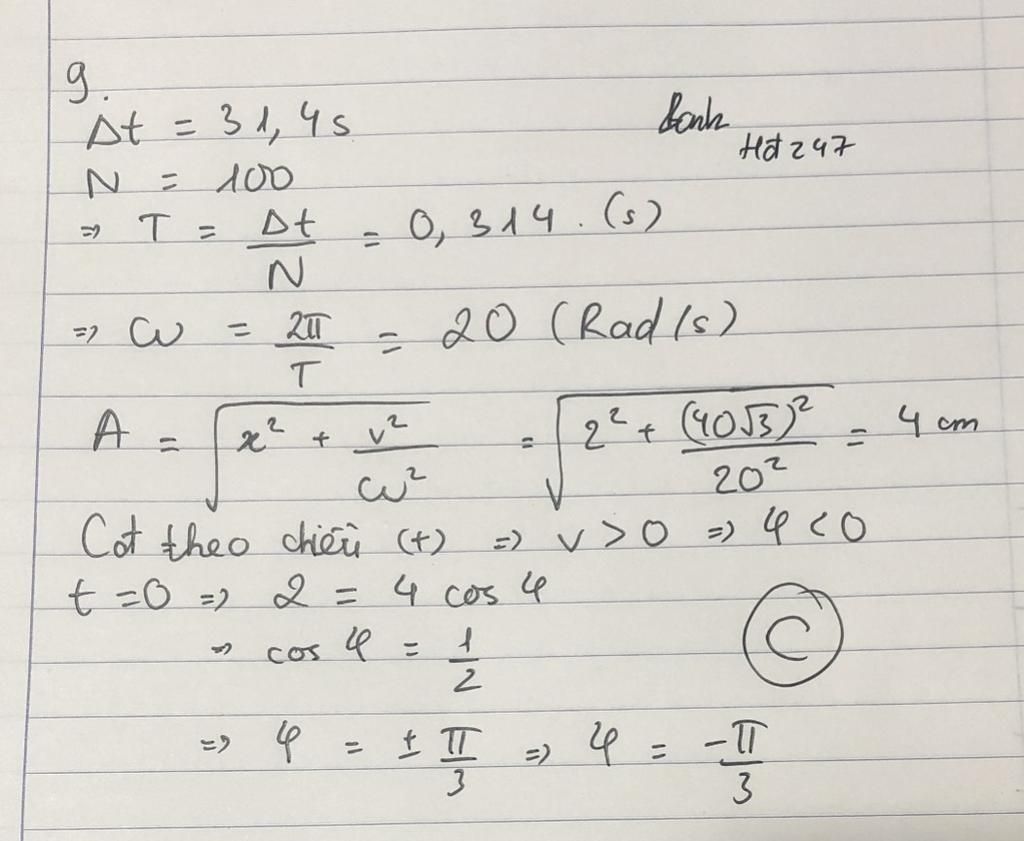 9.
Δt = 31,4s
Hđ247
N = 100
⇒ T = Δt/N = 0,314. (s)
⇒ ω = 2π/T = 20 (Rad/s)
A = √(x² + v²/ω²) = √(2² + (40√3)²/20²) = 4 cm
theo chiều (+) ⇒ v > 0 ⇒ φ < 0
t = 0 ⇒ 2 = 4 cos φ
⇒ cos φ = 1/2
C
⇒ φ = ± π/3 ⇒ φ = -π/3